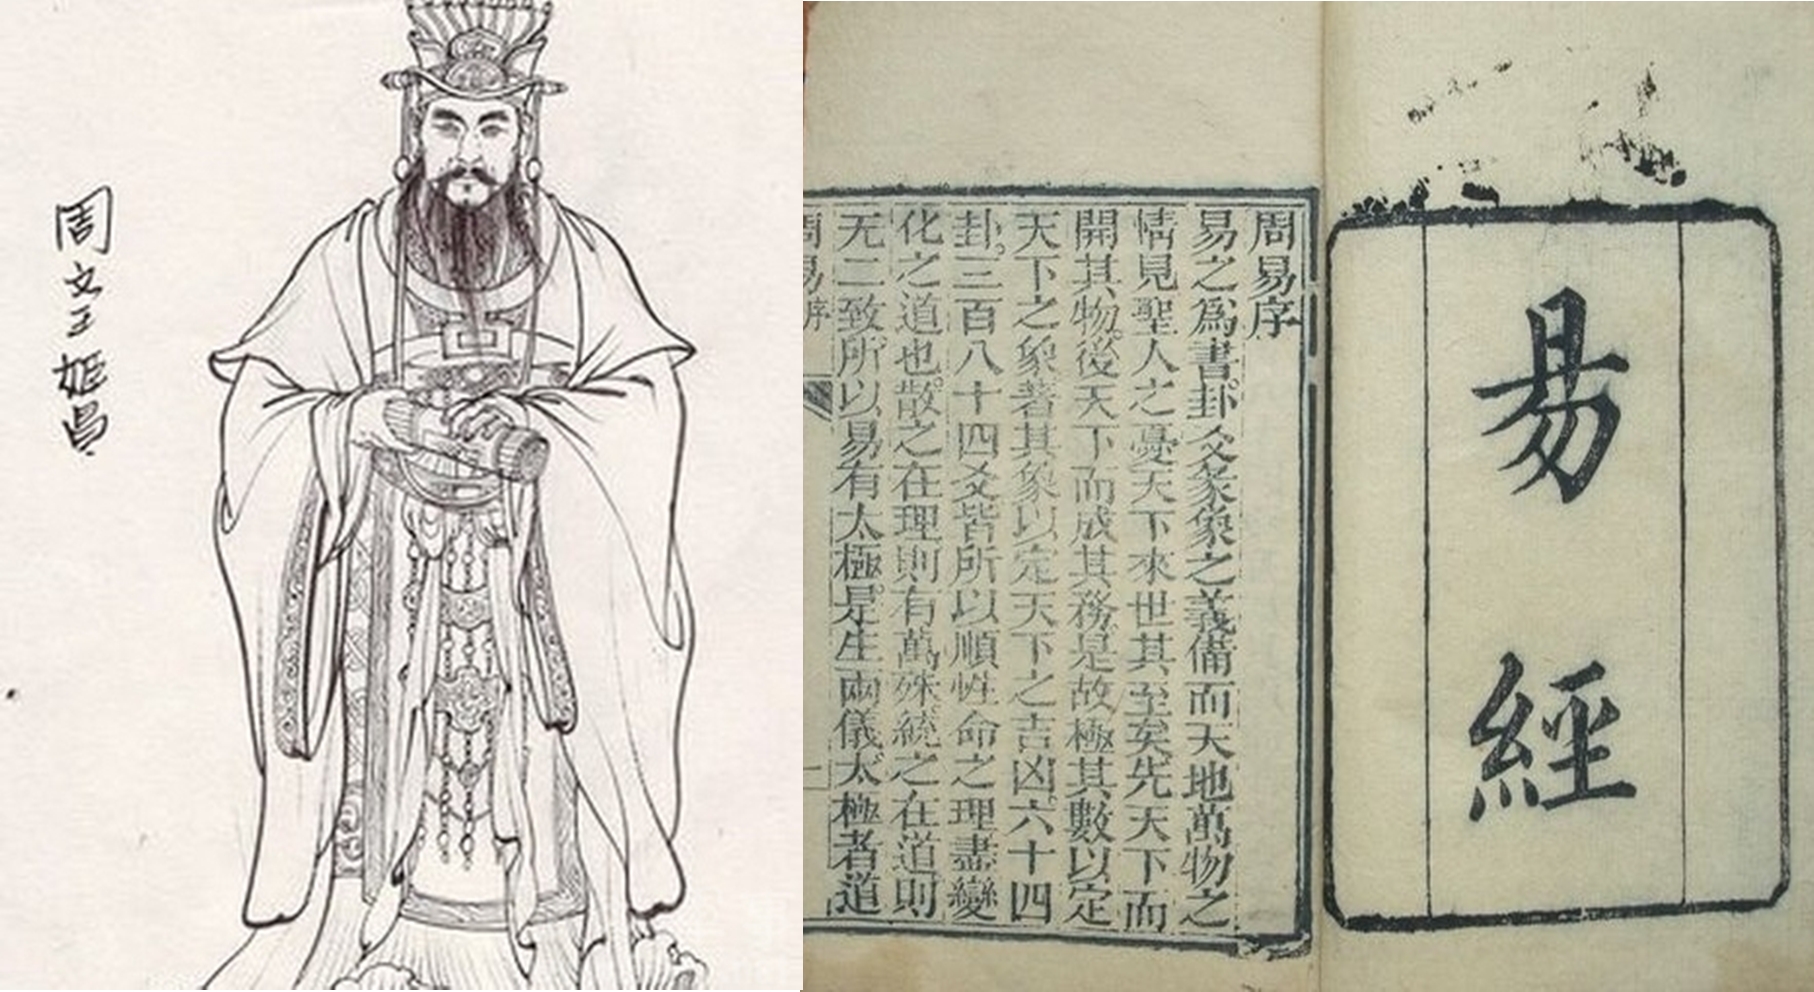 周文王姬昌
易經
周易序
易之為書。卦爻彖象之義備而天地萬物之
情見聖人之憂天下來世其至矣先天下而
開其物。後天下而成其務是故極其數以定
天下之象著其象以定天下之吉凶。六十四
卦。三百八十四爻皆所以順性命之理盡變
化之道也。散之在理則有萬殊。統之在道則
无二致。所以易有太極。是生兩儀太極者道
周易序
一